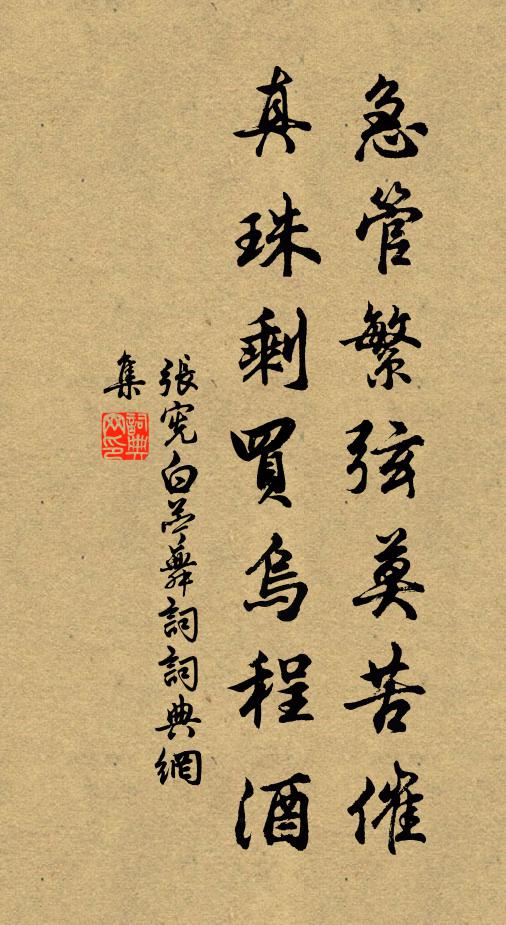 急管繁弦莫苦催
真珠剩買烏程酒
張宪白苎舞詞詞典網
集
詞典网印